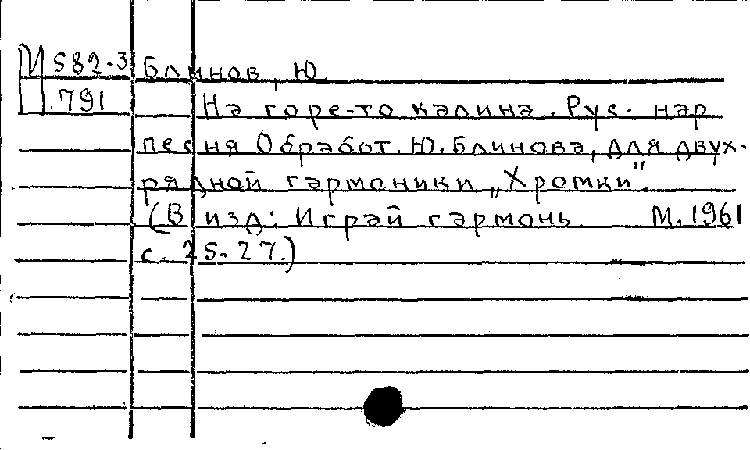 М 582-3 Блинов, Ю.
791 На горе-то калина. Рус. нар
песня Обработ. Ю. Блинова, для двух-
рядной гармоники „Хромки".
(В изд: Играй гармонь. М. 1961
с. 25-27.)